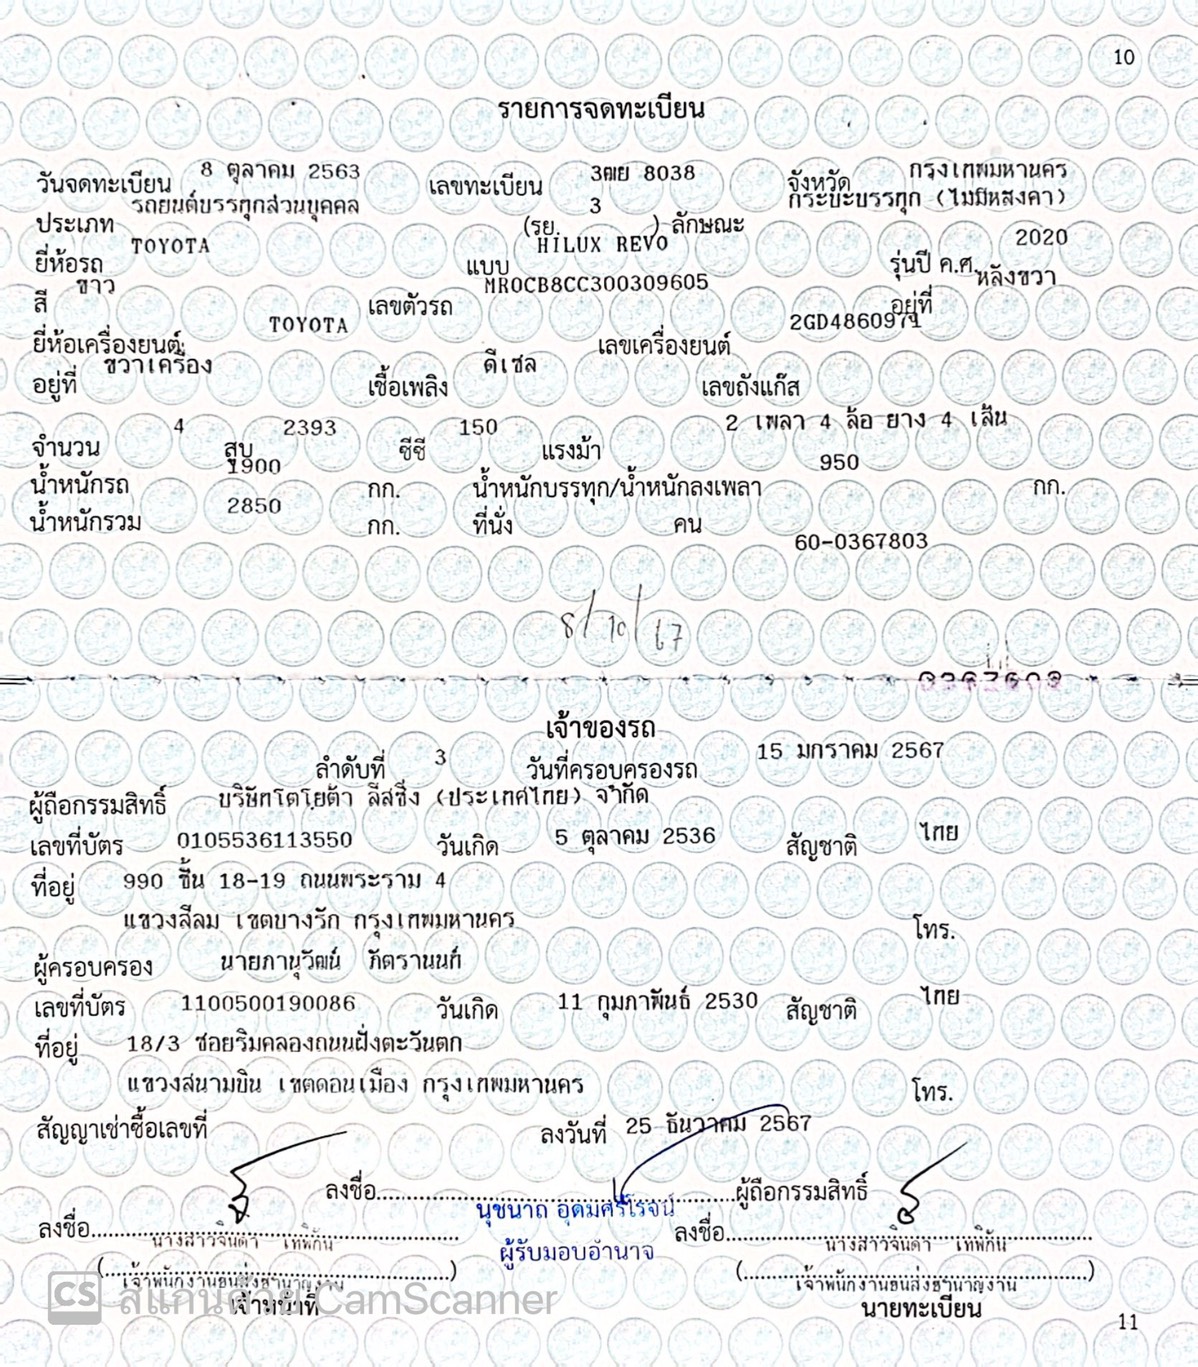 10
รายการจดทะเบียน
วันจดทะเบียน 8 ตุลาคม 2563 เลขทะเบียน 3ฒย 8038 จังหวัด กรุงเทพมหานคร
ประเภท รถยนต์บรรทุกส่วนบุคคล (รย. 3 ) ลักษณะ กระบะบรรทุก (ไม่มีหลังคา)
ยี่ห้อรถ TOYOTA แบบ HILUX REVO รุ่นปี ค.ศ. 2020
สี ขาว เลขตัวรถ MR0CB8CC300309605 อยู่ที่ หลังขวา
ยี่ห้อเครื่องยนต์ TOYOTA เลขเครื่องยนต์ 2GD4860971
อยู่ที่ ขวาเครื่อง เชื้อเพลิง ดีเซล เลขถังแก๊ส
จำนวน 4 สูบ 2393 ซีซี 150 แรงม้า 2 เพลา 4 ล้อ ยาง 4 เส้น
น้ำหนักรถ 1900 กก. น้ำหนักบรรทุก/น้ำหนักลงเพลา 950 กก.
น้ำหนักรวม 2850 กก. ที่นั่ง คน
60-0367803
8/10/67
เจ้าของรถ
ลำดับที่ 3 วันที่ครอบครองรถ 15 มกราคม 2567
ผู้ถือกรรมสิทธิ์ บริษัทโตโยต้า ลีสซิ่ง (ประเทศไทย) จำกัด
เลขที่บัตร 0105536113550 วันเกิด 5 ตุลาคม 2536 สัญชาติ ไทย
ที่อยู่ 990 ชั้น 18-19 ถนนพระราม 4
แขวงสีลม เขตบางรัก กรุงเทพมหานคร โทร.
ผู้ครอบครอง นายภานุวัฒน์ ภัตรานนท์
เลขที่บัตร 1100500190086 วันเกิด 11 กุมภาพันธ์ 2530 สัญชาติ ไทย
ที่อยู่ 18/3 ซอยริมคลองถนนฝั่งตะวันตก
แขวงสนามบิน เขตดอนเมือง กรุงเทพมหานคร โทร.
สัญญาเช่าซื้อเลขที่ ลงวันที่ 25 ธันวาคม 2567
ลงชื่อ ผู้ถือกรรมสิทธิ์
นุชนาถ อุดมศรีโรจน์
ลงชื่อ นางสาวจินดา เทพิกัน ผู้รับมอบอำนาจ ลงชื่อ นางสาวจินดา เทพิกัน
(เจ้าพนักงานขนส่งชำนาญงาน) (เจ้าพนักงานขนส่งชำนาญงาน)
เจ้าหน้าที่ นายทะเบียน
CS สแกนด้วย CamScanner
11